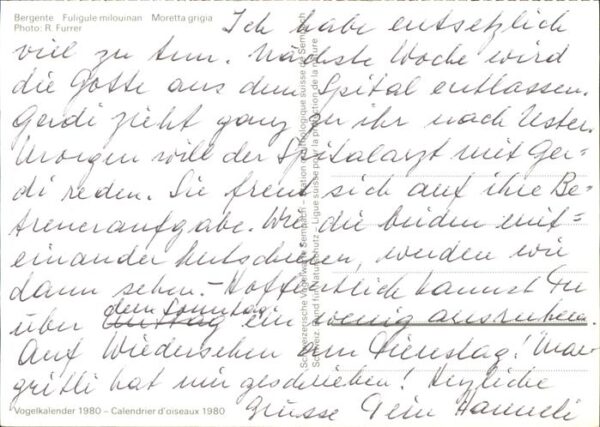 Bergente Fuligule milouinan Moretta grigia
Photo: R. Furrer
Ich habe entsetzlich
viel zu tun. Nächste Woche wird
die Gotte aus dem Spital entlassen.
Gerdi zieht ganz zu ihr nach Uster.
Morgen will der Spitalarzt mit Ger-
di reden. Sie freut sich auf ihre Be-
treueraufgabe. Wie die beiden mit=
einander kutschieren, werden wir
dann sehen. – Hoffentlich kannst Du
über dem Sonntag ein wenig ausruhen.
Auf Wiedersehen am Dienstag! Mar
gritli hat mir geschrieben! Herzliche
Grüsse Dein Hanneli
Schweizerische Vogelwarte Sempach – Station ornithologique suisse de Sempach
Schweiz. Bund für Naturschutz – Ligue suisse pour la protection de la nature
Vogelkalender 1980 – Calendrier d'oiseaux 1980